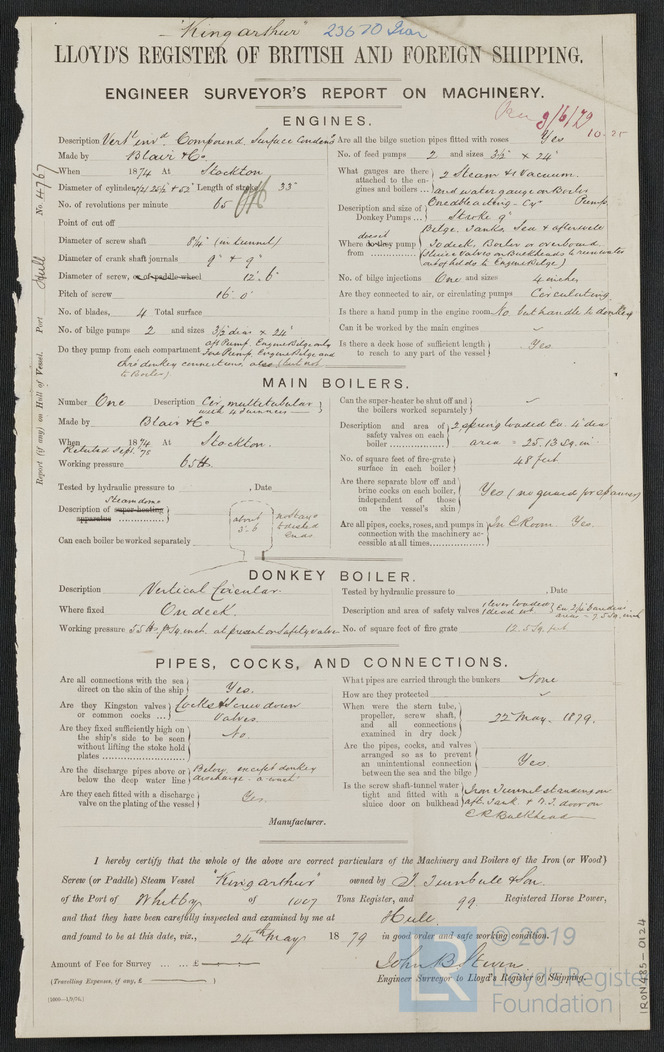 "King arthur" 23670 Iron
LLOYD'S REGISTER OF BRITISH AND FOREIGN SHIPPING.
ENGINEER SURVEYOR'S REPORT ON MACHINERY.
9/6/79
10.25
Report (if any) on Hull of Vessel. Port Hull No. 4767
ENGINES.
Description Vert invd Compound, Surface Condens
Made by Blair & Co.
When 1874 At Stockton
Diameter of cylinders Length of stroke 33"
No. of revolutions per minute 65
Point of cut off
Diameter of screw shaft 8¼" (in tunnel)
Diameter of crank shaft journals 9" & 9"
Diameter of screw, or of paddle wheel 12'. 6"
Pitch of screw 16'. 0"
No. of blades, 4 Total surface
No. of bilge pumps 2 and sizes 3½ diar × 24"
Do they pump from each compartment aft Pump, Engine Bilge only
Fore Pump, Engine Bilge and
thro' donkey connections also (but not
to Boiler)
Are all the bilge suction pipes fitted with roses Yes
No. of feed pumps 2 and sizes 3½ × 24"
What gauges are there attached to the engines and boilers ... 2 Steam & 1 Vacuum.
and water gauge on Boiler
Description and size of Donkey Pumps ... One dble acting Cyr Pump
Stroke 9"
Where do they pump from does it Bilge, Tanks, Sea & afterwell
To deck, Boiler or overboard
(Sluice Valves on Bulkheads to run water
out of hd do to Engine Bilge)
No. of bilge injections One and sizes 4 inches
Are they connected to air, or circulating pumps Circulating
Is there a hand pump in the engine room No but handle to donkey
Can it be worked by the main engines
Is there a deck hose of sufficient length to reach to any part of the vessel Yes
MAIN BOILERS.
Number One Description Cir. multitubular
with 4 furnaces
Made by Blair & Co
When 1874 At Stockton.
Retubed Sept. '78
Working pressure 65 lb
Tested by hydraulic pressure to , Date
Steam dome
Description of super-heating apparatus
about
5-6
no stays
to dished
ends
Can each boiler be worked separately
Can the super-heater be shut off and the boilers worked separately
Description and area of safety valves on each boiler 2 spring loaded Ea. 4" dia
area = 25.13 Sq. in.
No. of square feet of fire-grate surface in each boiler 48 feet
Are there separate blow off and brine cocks on each boiler, independent of those on the vessel's skin Yes (no guard for spanner)
Are all pipes, cocks, roses, and pumps in connection with the machinery accessible at all times In E Room Yes.
DONKEY BOILER.
Description Vertical Circular.
Where fixed On deck.
Working pressure 55 lbs pr Sq. inch. at present on Safety valve
Tested by hydraulic pressure to , Date
Description and area of safety valves 1 lever loaded
1 dead wt.
No. of square feet of fire grate 12.5 Sq. feet
PIPES, COCKS, AND CONNECTIONS.
Are all connections with the sea direct on the skin of the ship Yes.
Are they Kingston valves or common cocks ... Cocks & Screw down
Valves
Are they fixed sufficiently high on the ship's side to be seen without lifting the stoke hold plates No.
Are the discharge pipes above or below the deep water line Below, except donkey
discharge
Are they each fitted with a discharge valve on the plating of the vessel Yes.
What pipes are carried through the bunkers None
How are they protected
When were the stern tube, propeller, screw shaft, and all connections examined in dry dock 22 May. 1879.
Are the pipes, cocks, and valves arranged so as to prevent an unintentional connection between the sea and the bilge Yes.
Is the screw shaft-tunnel water tight and fitted with a sluice door on bulkhead Iron Tunnel standing on
aft. Tank & W.T. door on
E.R Bulkhead
Manufacturer.
I hereby certify that the whole of the above are correct particulars of the Machinery and Boilers of the Iron (or Wood)
Screw (or Paddle) Steam Vessel "King arthur" owned by T. Turnbull & Son.
of the Port of Whitby of 1007 Tons Register, and 99 Registered Horse Power,
and that they have been carefully inspected and examined by me at Hull
and found to be at this date, viz., 24th May 1879 in good order and safe working condition.
Amount of Fee for Survey ... ... £
(Travelling Expenses, if any, £ )
Engineer Surveyor to Lloyd's Register of Shipping.
(1000—1/9/76.)
LR © 2019
Lloyd's Register
Foundation
IRON485-0124